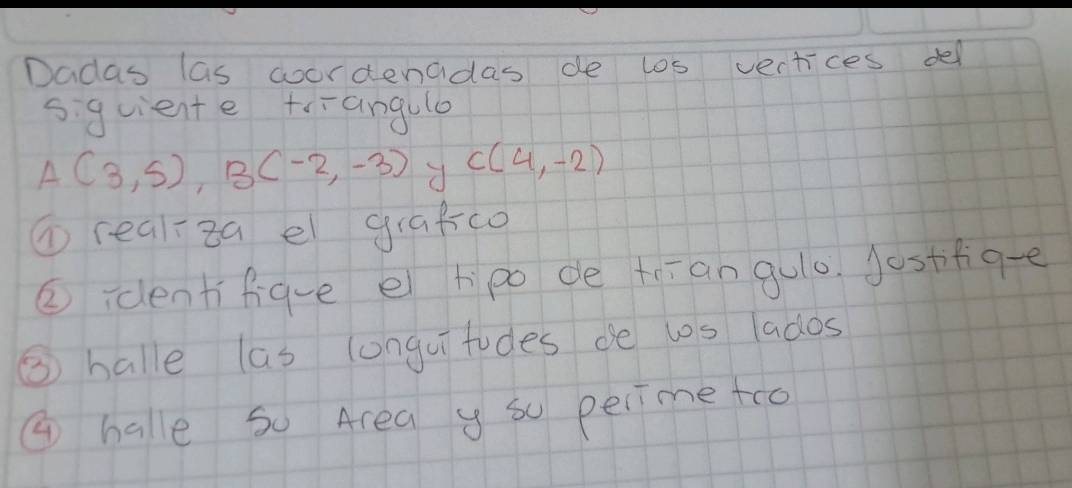 Dadas las coordenadas de los vertices del
siguiente triangulo
A(3,5), B(-2,-3) y C(4,-2)
① realiza el grafico
② identifique el tipo de triangulo. Justifique
③ halle las longuitudes de los lados
④ halle su Area y su perimetro